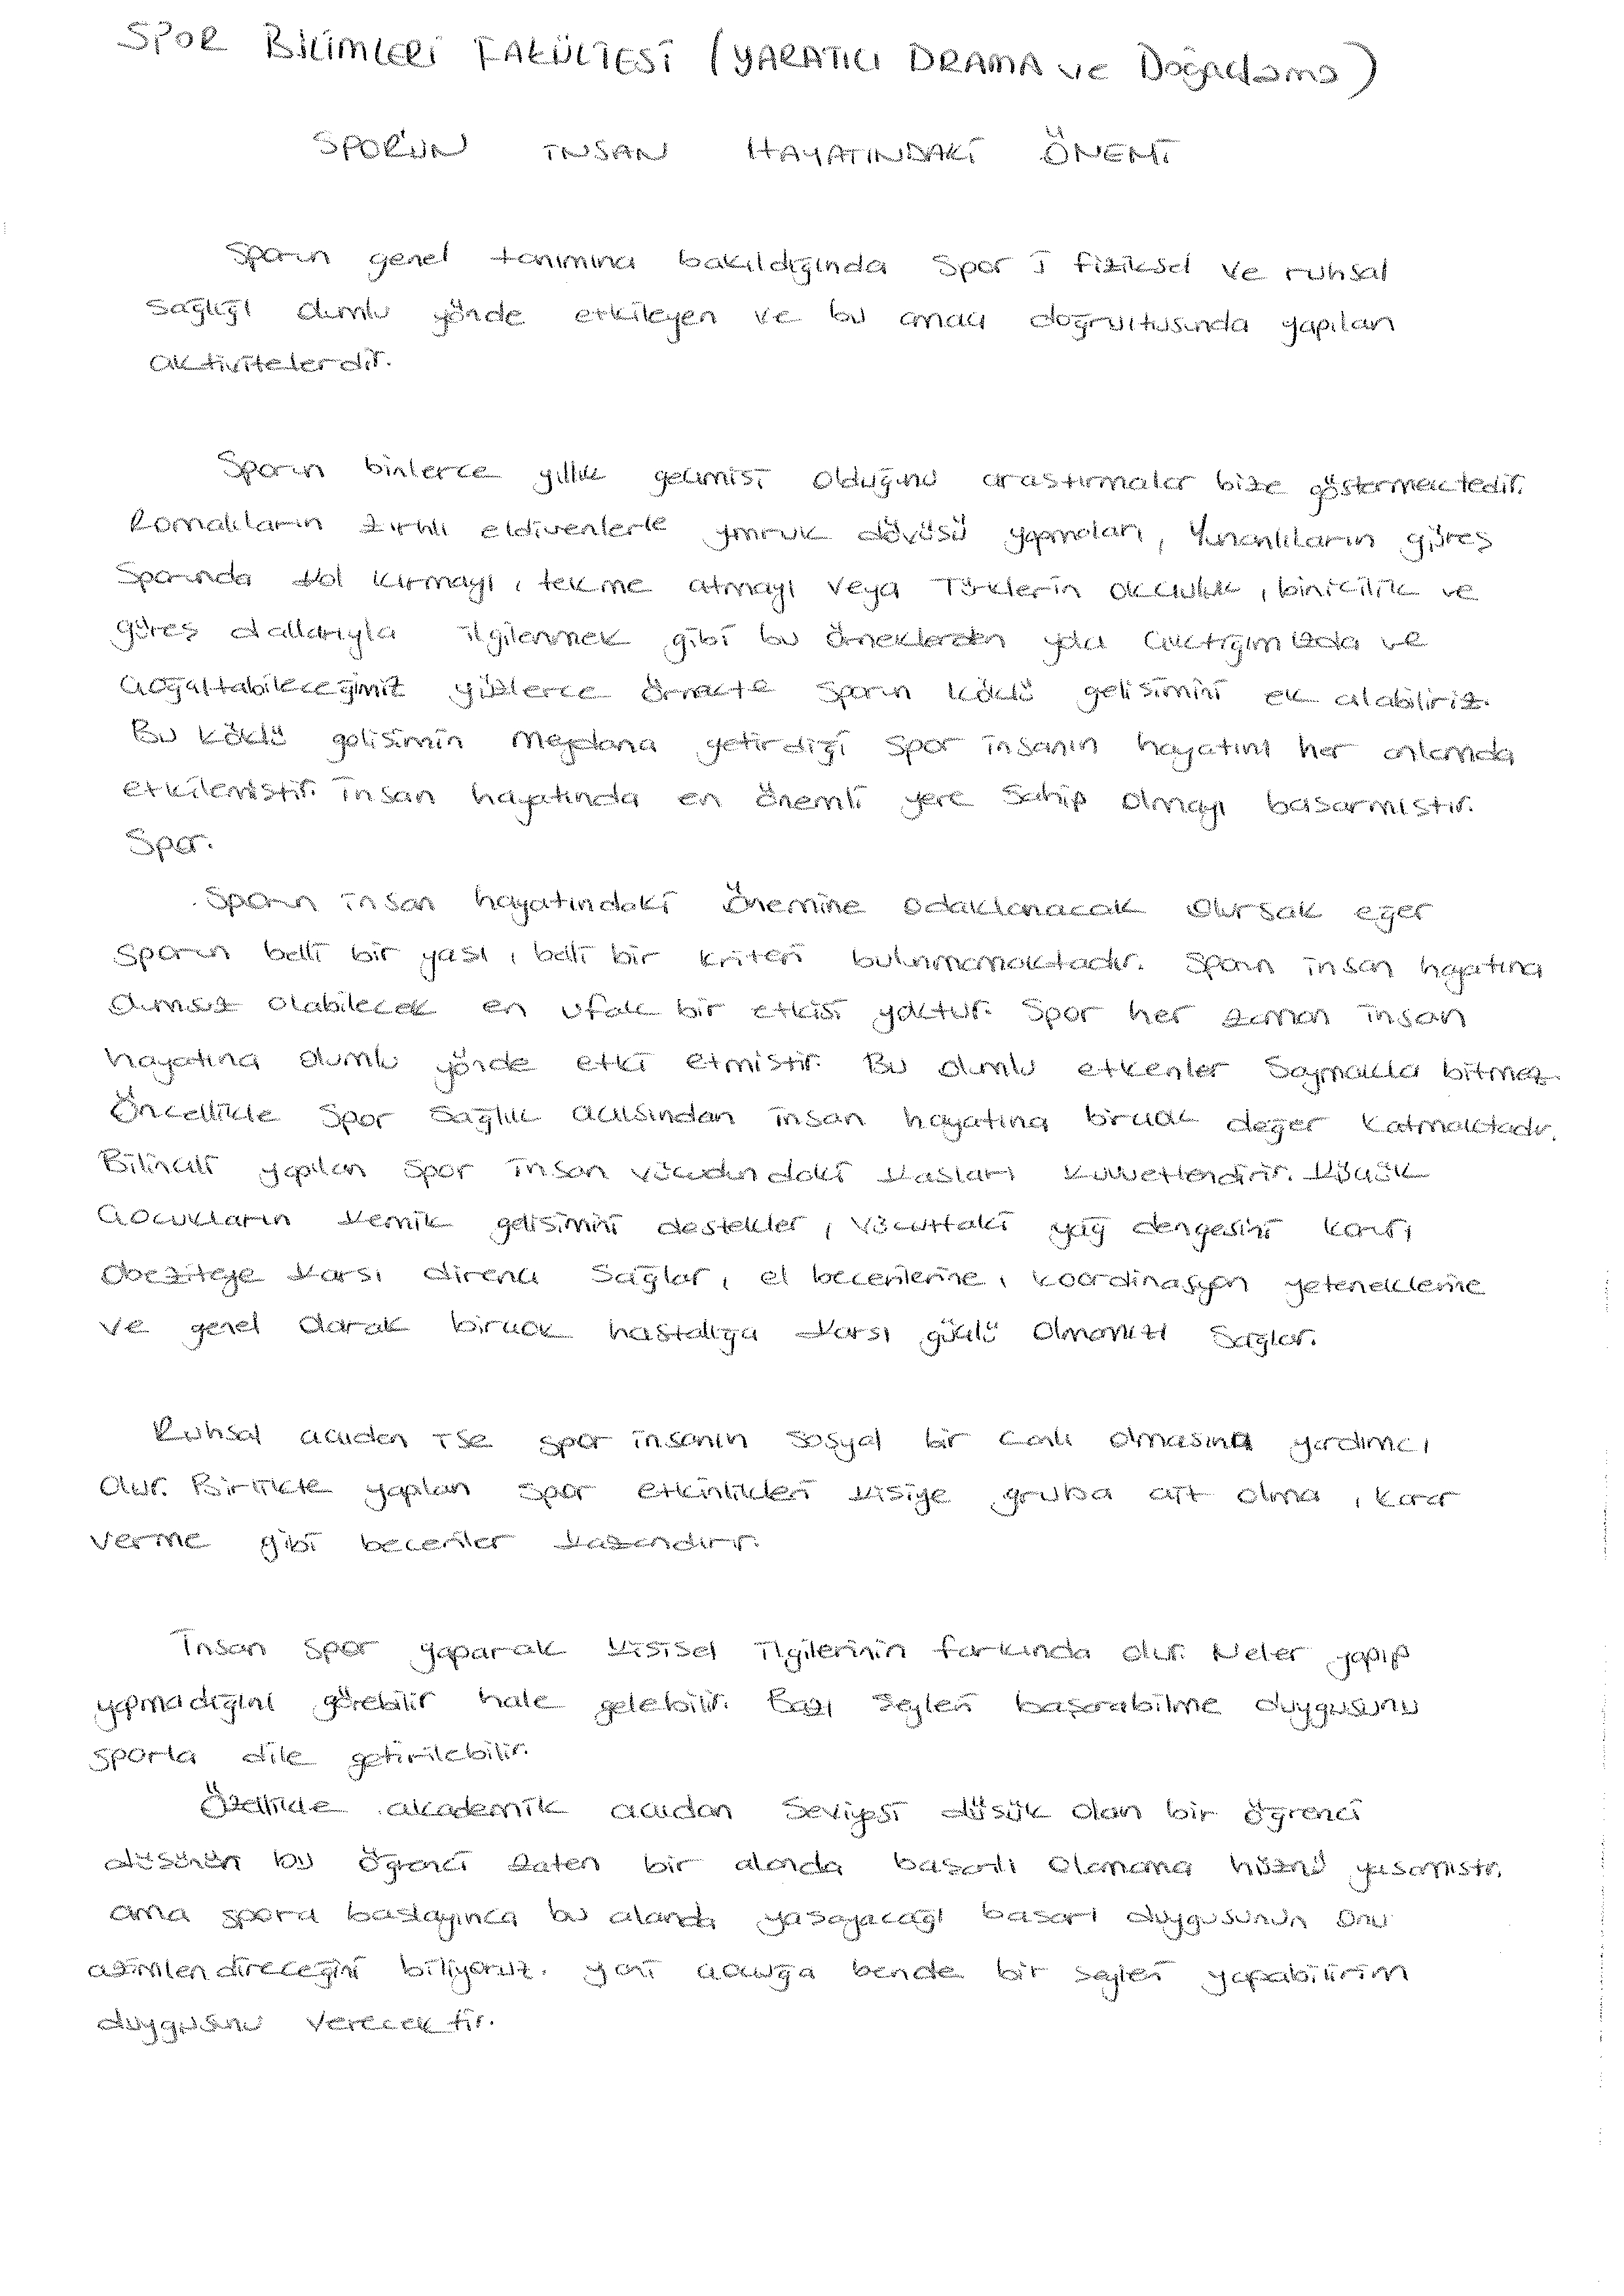 SPOR BİLİMLERİ FAKÜLTESİ (YARATICI DRAMA ve Doğaçlama)
SPOR'UN İNSAN HAYATINDAKİ ÖNEMİ
Sporun genel tanımına bakıldığında Spor; fiziksel ve ruhsal
sağlığı olumlu yönde etkileyen ve bu amaç doğrultusunda yapılan
aktivitelerdir.
Sporun binlerce yıllık geçmişi olduğunu araştırmalar bize göstermektedir.
Romalıların zırhlı eldivenlerle yumruk dövüşü yapmaları, Yunanlıların güreş
Sporunda kol kırmayı, tekme atmayı veya Türklerin okçuluk, binicilik ve
güreş dallarıyla ilgilenmek gibi bu örneklerden yola çıktığımızda ve
çoğaltabileceğimiz yüzlerce örnekte sporun köklü gelişimini ele alabiliriz.
Bu köklü gelişimin meydana getirdiği spor insanın hayatını her anlamda
etkilemiştir. İnsan hayatında en önemli yere sahip olmayı başarmıştır.
Spor.
Sporun insan hayatındaki önemine odaklanacak olursak eğer
sporun belli bir yaşı, belli bir kriteri bulunmamaktadır. Sporun insan hayatına
olumsuz olabilecek en ufak bir etkisi yoktur. Spor her zaman insan
hayatına olumlu yönde etki etmiştir. Bu olumlu etkenler saymakla bitmez.
Öncellikle spor sağlık açısından insan hayatına birçok değer katmaktadır.
Bilinçli yapılan spor insan vücudundaki kasları kuvvetlendirir. Küçük
çocukların kemik gelişimini destekler, vücuttaki yağ dengesini korur,
Obeziteye karşı direnç sağlar, el becerilerine, koordinasyon yeteneklerine
ve genel olarak birçok hastalığa karşı güçlü olmamızı sağlar.
Ruhsal açıdan ise spor insanın sosyal bir canlı olmasına yardımcı
olur. Birlikte yapılan spor etkinlikleri kişiye gruba ait olma, karar
verme gibi beceriler kazandırır.
İnsan spor yaparak kişisel ilgilerinin farkında olur. Neler yapıp
yapmadığını görebilir hale gelebilir. Bazı şeyleri başarabilme duygusunu
sporla dile getirilebilir.
Özellikle akademik açıdan seviyesi düşük olan bir öğrenci
düşünün bu öğrenci zaten bir alanda başarılı olamama hüznü yaşamıştır,
ama spora başlayınca bu alanda yaşayacağı başarı duygusunun onu
azimlendireceğini biliyoruz. yani çocuğa bende bir şeyler yapabilirim
duygusunu verecektir.